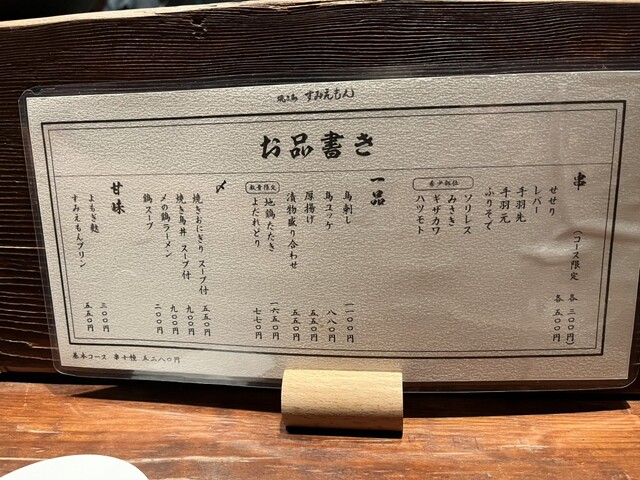 焼き鳥 すみえもん
お品書き
串 (コース限定 各三〇〇円)
各五〇〇円
せせり
レバー
手羽先
手羽元
ふりそで
希少部位
ソリレス
みさき
ギザカワ
ハツモト
一品
鳥刺し 一一〇〇円
鳥ユッケ 八八〇円
厚揚げ 五五〇円
漬物盛り合わせ 五五〇円
数量限定
地鶏たたき 一六五〇円
よだれどり 七七〇円
〆
焼きおにぎり スープ付 五五〇円
焼き鳥丼 スープ付 九〇〇円
〆の鶏ラーメン 九〇〇円
鶏スープ 二〇〇円
甘味
よもぎ麩 三〇〇円
すみえもんプリン 五五〇円
基本コース 串十種 五二八〇円